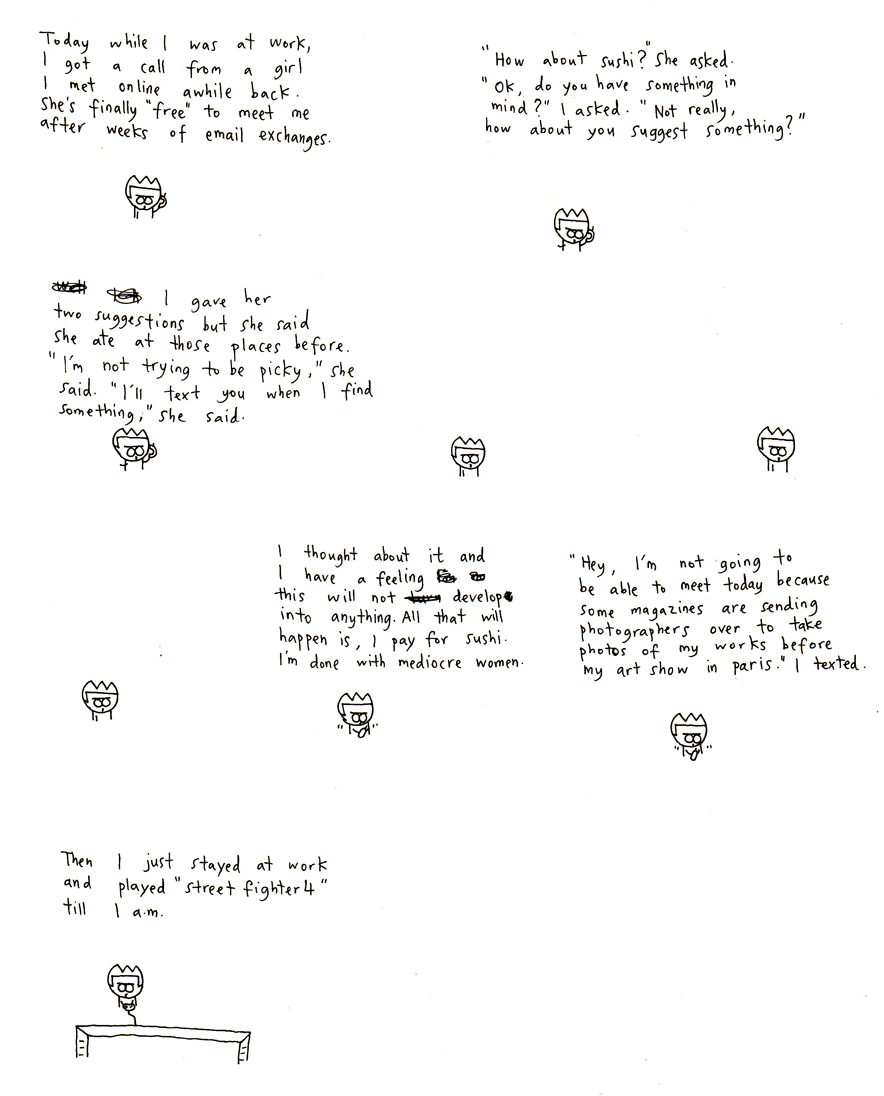 Today while I was at work,
I got a call from a girl
I met online awhile back.
She's finally "free" to meet me
after weeks of email exchanges.
"How about sushi?" She asked.
"Ok, do you have something in
mind?" I asked. "Not really,
how about you suggest something?"
I gave her
two suggestions but she said
She ate at those places before.
"I'm not trying to be picky," she
said. "I'll text you when I find
something," she said.
I thought about it and
I have a feeling
this will not develop
into anything. All that will
happen is, I pay for sushi.
I'm done with mediocre women.
"Hey, I'm not going to
be able to meet today because
some magazines are sending
photographers over to take
photos of my works before
my art show in paris." I texted.
Then I just stayed at work
and played "street fighter 4"
till 1 a.m.